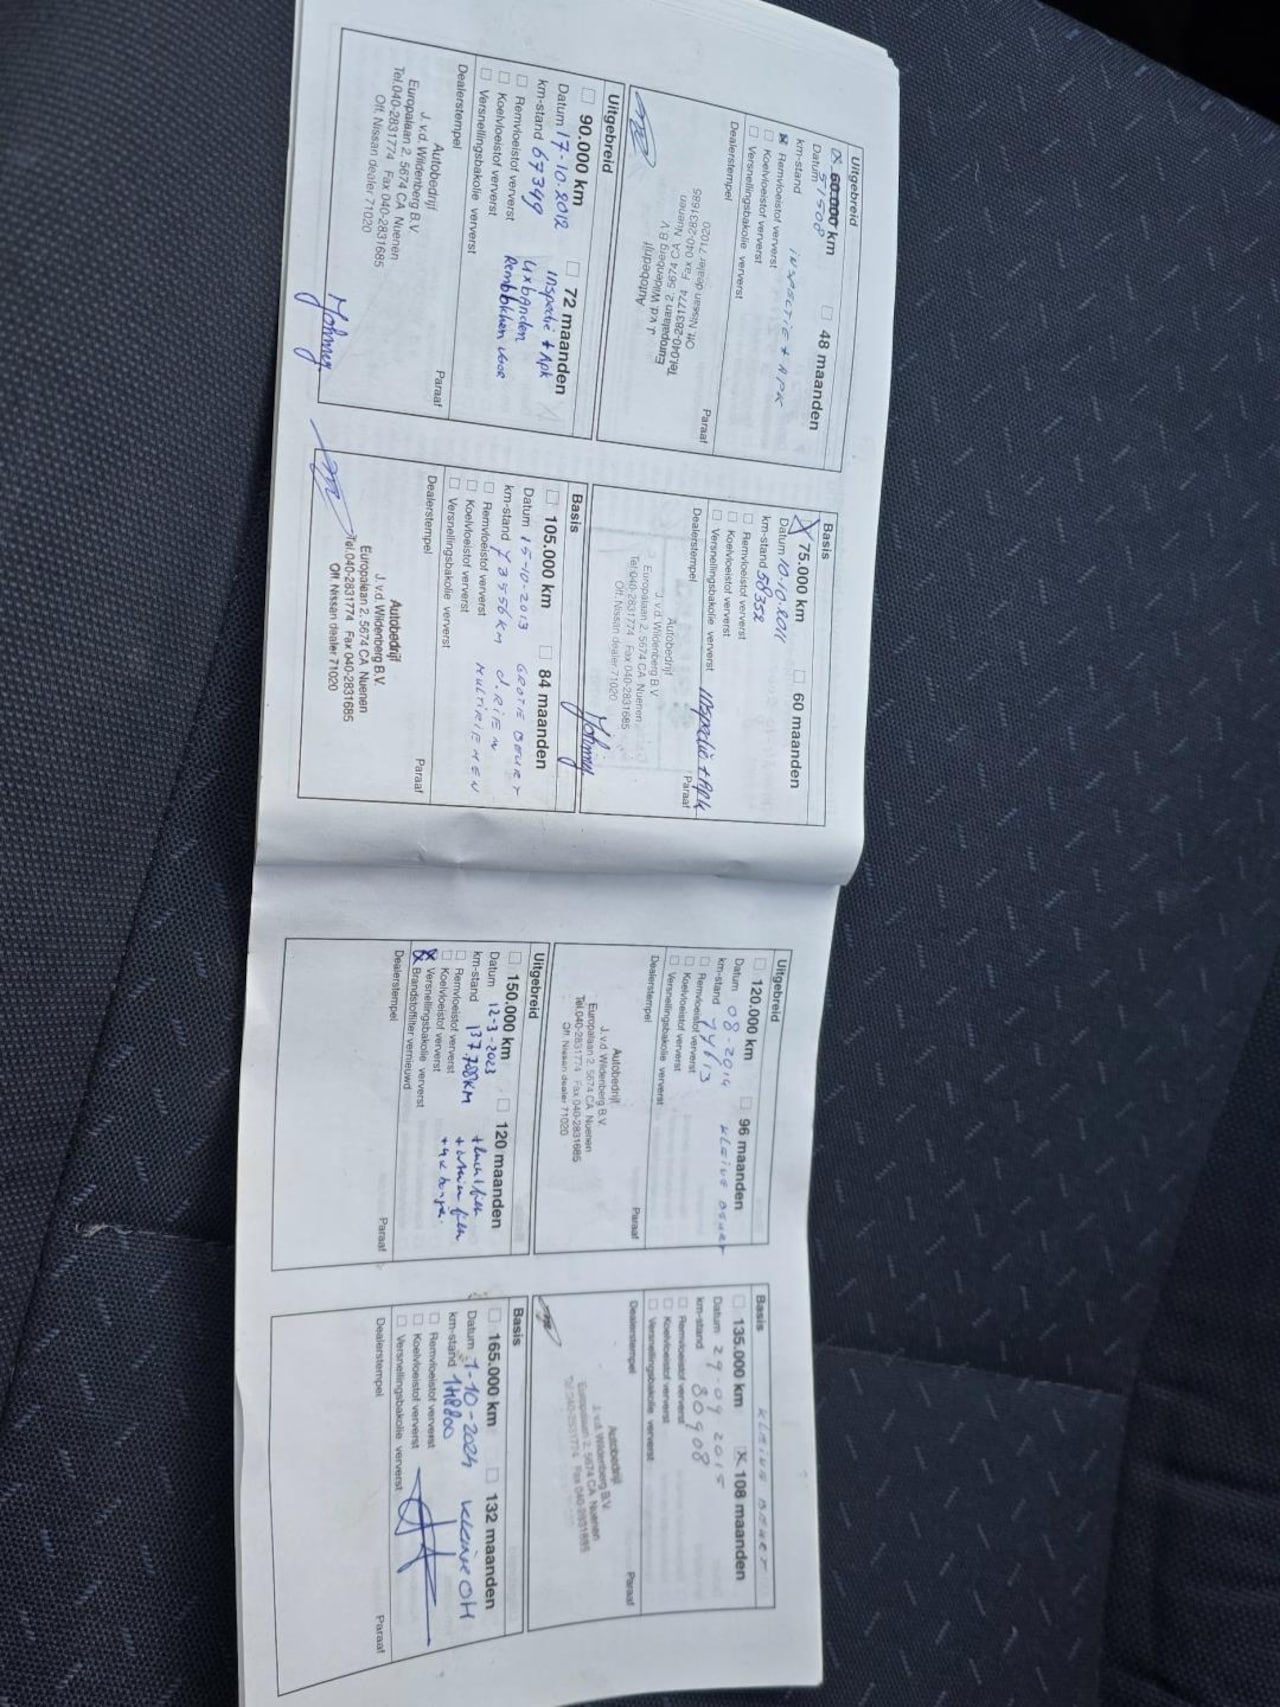 Uitgebreid
60.000 km 48 maanden
Datum 51508
km-stand INSPECTIE + APK
Remvloeistof ververst
Koelvloeistof ververst
Versnellingsbakolie ververst
Dealerstempel Paraaf
Autobedrijf
J. v.d. Wildenberg B.V.
Europalaan 2, 5674 CA Nuenen
Tel.040-2831774 Fax 040-2831685
Off. Nissan dealer 71020
Basis
75.000 km 60 maanden
Datum 10.10.2011
km-stand 58352
Remvloeistof ververst
Koelvloeistof ververst
Versnellingsbakolie ververst Inspectie + Apk
Dealerstempel Paraaf
Autobedrijf
J. v.d. Wildenberg B.V.
Europalaan 2, 5674 CA Nuenen
Tel.040-2831774 Fax 040-2831685
Off. Nissan dealer 71020
Uitgebreid
90.000 km 72 maanden
Datum 17-10.2012 Inspectie + Apk
km-stand 67349 4x banden
Remvloeistof ververst Remblokken voor
Koelvloeistof ververst
Versnellingsbakolie ververst
Dealerstempel Paraaf
Autobedrijf
J. v.d. Wildenberg B.V.
Europalaan 2, 5674 CA Nuenen
Tel.040-2831774 Fax 040-2831685
Off. Nissan dealer 71020
Basis
105.000 km 84 maanden
Datum 15-10-2013 GROTE BEURT
km-stand 73556 KM D.RIEM
Remvloeistof ververst MULTIRIEMEN
Koelvloeistof ververst
Versnellingsbakolie ververst
Dealerstempel Paraaf
Autobedrijf
J. v.d. Wildenberg B.V.
Europalaan 2, 5674 CA Nuenen
Tel.040-2831774 Fax 040-2831685
Off. Nissan dealer 71020
Uitgebreid
120.000 km 96 maanden
Datum 08-2014 KLEINE BEURT
km-stand 77613
Remvloeistof ververst
Koelvloeistof ververst
Versnellingsbakolie ververst
Dealerstempel Paraaf
Autobedrijf
J. v.d. Wildenberg B.V.
Europalaan 2, 5674 CA Nuenen
Tel.040-2831774 Fax 040-2831685
Off. Nissan dealer 71020
Basis KLEINE BEURT
135.000 km 108 maanden
Datum 29-09 2015
km-stand 80908
Remvloeistof ververst
Koelvloeistof ververst
Versnellingsbakolie ververst
Dealerstempel Paraaf
Autobedrijf
J. v.d. Wildenberg B.V.
Europalaan 2, 5674 CA Nuenen
Tel.040-2831774 Fax 040-2831685
Uitgebreid
150.000 km 120 maanden
Datum 12-3-2023
km-stand 137.788 KM
Remvloeistof ververst
Koelvloeistof ververst
Versnellingsbakolie ververst
Brandstoffilter vernieuwd
Dealerstempel Paraaf
Basis
165.000 km 132 maanden
Datum 1-10-2024 kleine OH
km-stand 148800
Remvloeistof ververst
Koelvloeistof ververst
Versnellingsbakolie ververst
Dealerstempel Paraaf